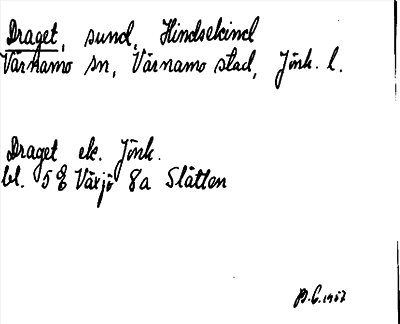 Draget, sund, Hindsekind
Värnamo sn, Värnamo stad, Jönk. l.
Draget ek. Jönk.
bl. 5 E Växjö 8a Slätten